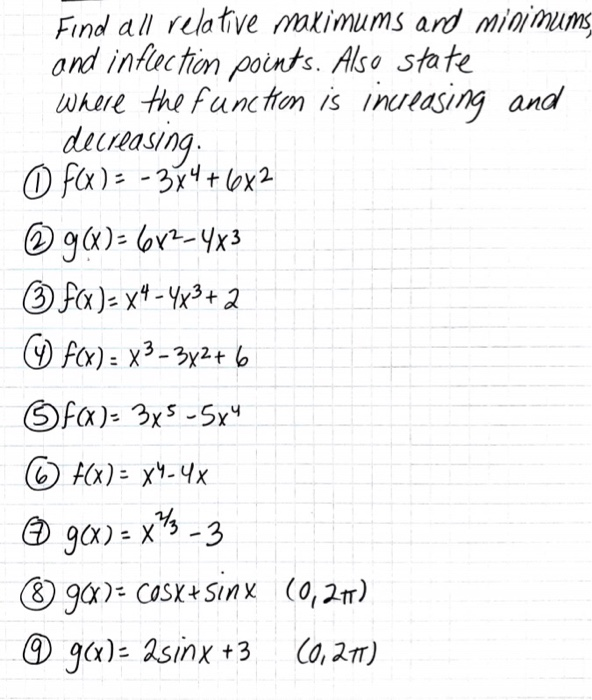 Find all relative maximums and minimums,
and inflection points. Also state
where the function is increasing and
decreasing.
① f(x) = -3x⁴ + 6x²
② g(x) = 6x² - 4x³
③ f(x) = x⁴ - 4x³ + 2
④ f(x) = x³ - 3x² + 6
⑤ f(x) = 3x⁵ - 5x⁴
⑥ f(x) = x⁴ - 4x
⑦ g(x) = x^2/3 - 3
⑧ g(x) = cosx + sinx (0, 2π)
⑨ g(x) = 2sinx + 3 (0, 2π)